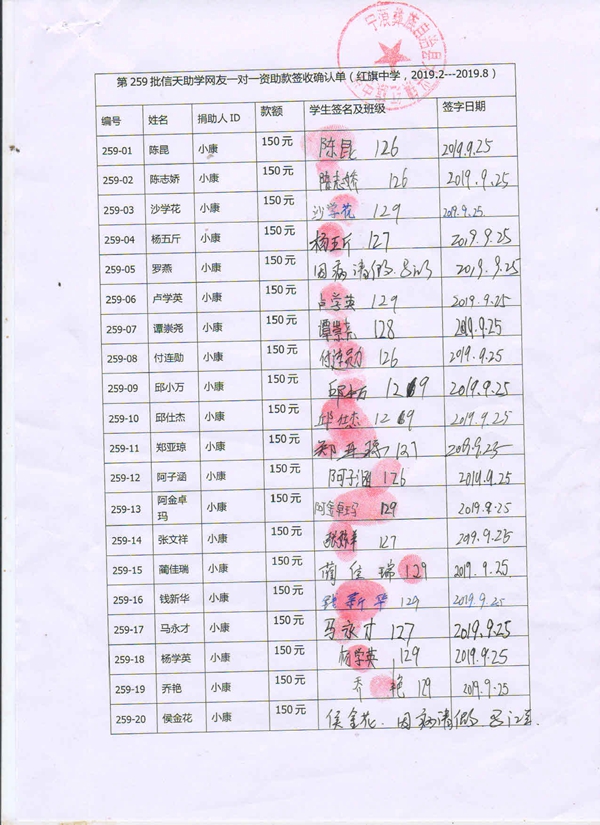 宁蒗彝族自治县
第 259 批信天助学网友一对一资助款签收确认单（红旗中学，2019.2---2019.8）
编号 姓名 捐助人 ID 款额 学生签名及班级 签字日期
259-01 陈昆 小康 150 元 陈昆 126 2019.9.25
259-02 陈志娇 小康 150 元 陈志娇 126 2019.9.25
259-03 沙学花 小康 150 元 沙学花 129 2019.9.25
259-04 杨五斤 小康 150 元 杨五斤 127 2019.9.25
259-05 罗燕 小康 150 元 因病请假 2019.9.25
259-06 卢学英 小康 150 元 卢学英 129 2019.9.25
259-07 谭崇尧 小康 150 元 谭崇尧 128 2019.9.25
259-08 付连勋 小康 150 元 付连勋 126 2019.9.25
259-09 邱小万 小康 150 元 邱小万 129 2019.9.25
259-10 邱仕杰 小康 150 元 邱仕杰 129 2019.9.25
259-11 郑亚琼 小康 150 元 郑亚琼 127 2019.9.25
259-12 阿子涵 小康 150 元 阿子涵 126 2019.9.25
259-13 阿金卓玛 小康 150 元 阿金卓玛 129 2019.9.25
259-14 张文祥 小康 150 元 127 2019.9.25
259-15 蔺佳瑞 小康 150 元 蔺佳瑞 129 2019.9.25
259-16 钱新华 小康 150 元 钱新华 129 2019.9.25
259-17 马永才 小康 150 元 马永才 127 2019.9.25
259-18 杨学英 小康 150 元 杨学英 129 2019.9.25
259-19 乔艳 小康 150 元 乔艳 129 2019.9.25
259-20 侯金花 小康 150 元 侯金花. 因病请假